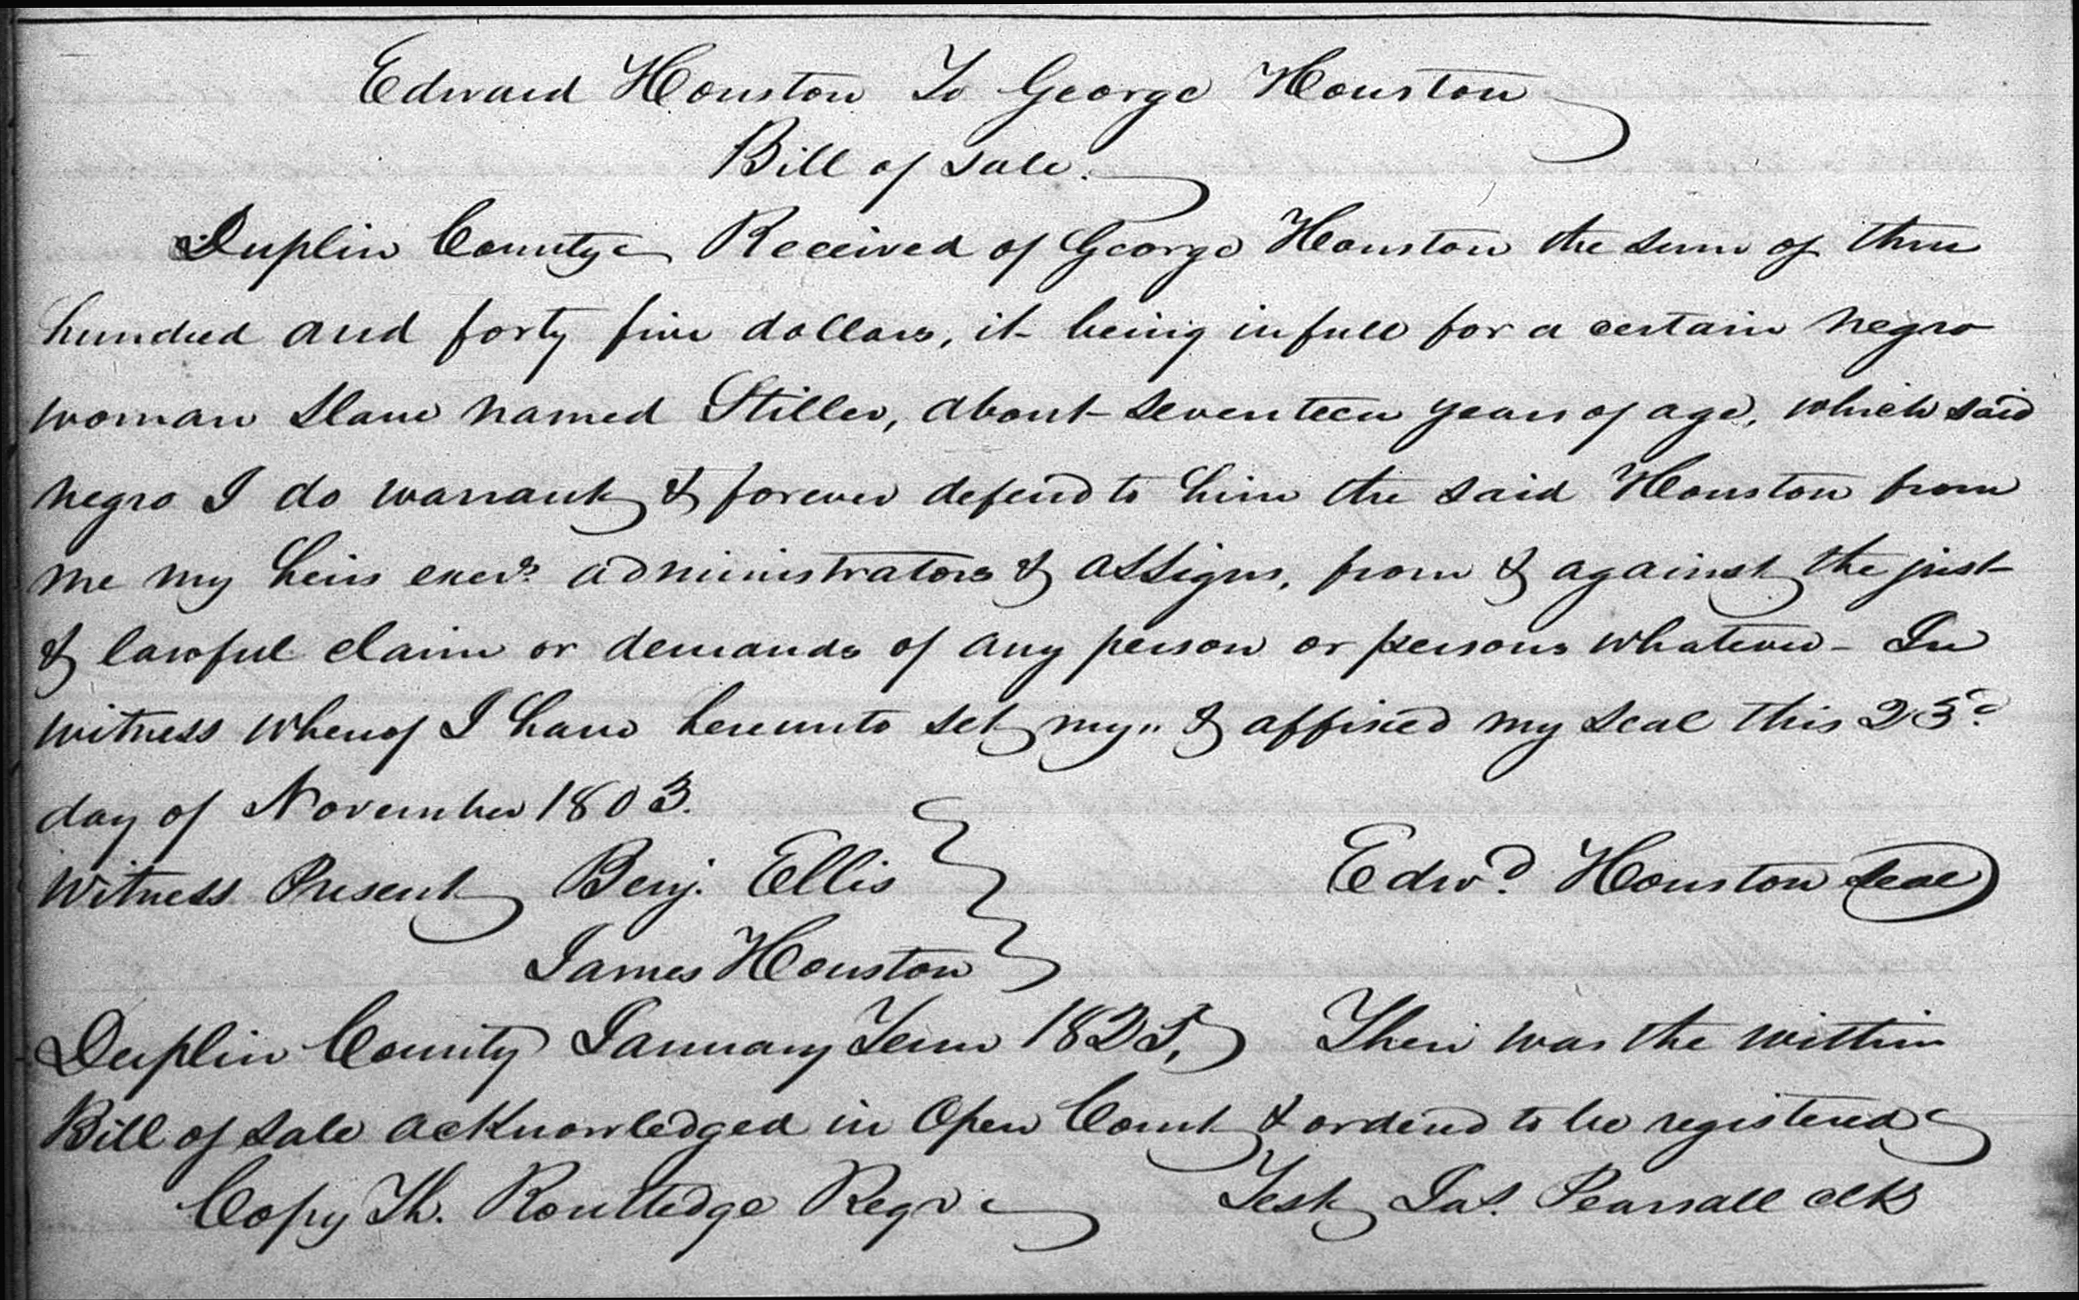 Edward Houston To George Houston
Bill of Sale.
Duplin County Received of George Houston the sum of three
hundred and forty five dollars, it being in full for a certain negro
woman slave named Stiller, about seventeen years of age, which said
negro I do warrant & forever defend to him the said Houston from
me my heirs exers. administrators & assigns, from & against the just
& lawful claim or demands of any person or persons whatever - In
witness whereof I have hereunto set my " & affixed my seal this 23d.
day of November 1803.
Witness Present Benj. Ellis Edwd. Houston Seal
James Houston
Duplin County January Term 1825, Then was the within
Bill of Sale acknowledged in Open Court & ordered to be registered
Copy Th. Routledge Regr Test Jas. Pearsall clk